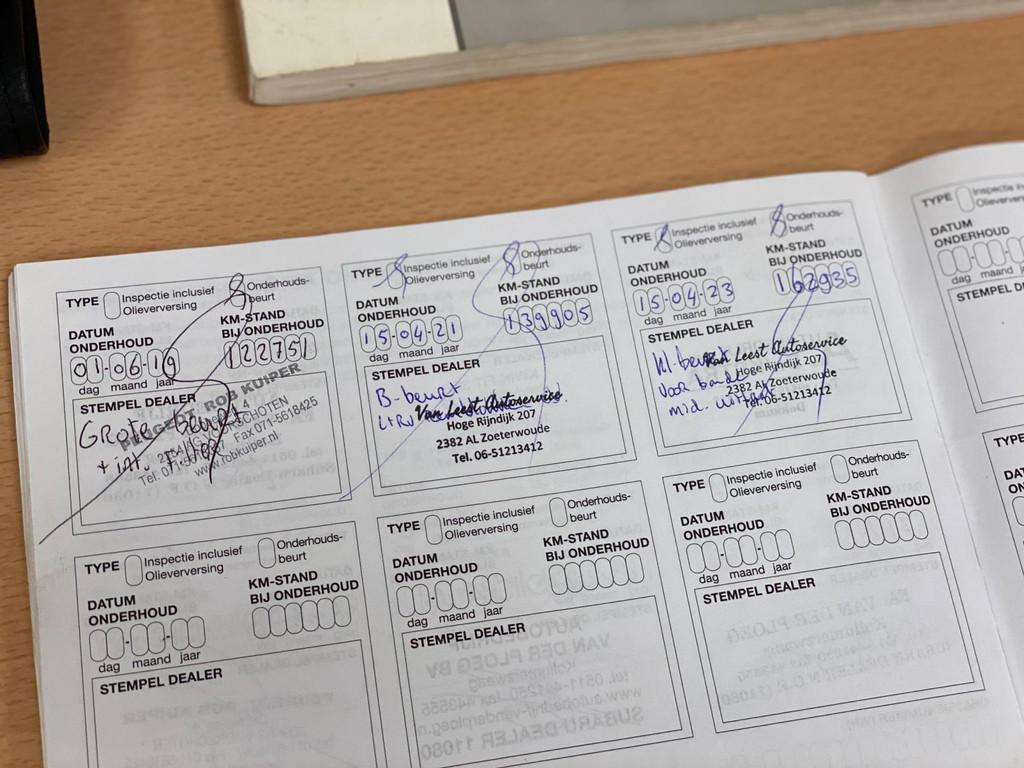 TYPE Inspectie inclusief Olieverversing Onderhouds-beurt
DATUM ONDERHOUD
KM-STAND BIJ ONDERHOUD
01-06-19
122751
dag maand jaar
STEMPEL DEALER
GROTE beurt
+ int.
PEUGEOT ROB KUIPER
Fax 071-5618425
www.robkuiper.nl
TYPE Inspectie inclusief Olieverversing Onderhouds-beurt
DATUM ONDERHOUD
KM-STAND BIJ ONDERHOUD
15-04-21
139905
dag maand jaar
STEMPEL DEALER
B-beurt
Van Leest Autoservice
Hoge Rijndijk 207
2382 AL Zoeterwoude
Tel. 06-51213412
TYPE Inspectie inclusief Olieverversing Onderhouds-beurt
DATUM ONDERHOUD
KM-STAND BIJ ONDERHOUD
15-04-23
162935
dag maand jaar
STEMPEL DEALER
Kl. beurt
Van Leest Autoservice
Voor
Hoge Rijndijk 207
2382 AL Zoeterwoude
mid.
Tel. 06-51213412
TYPE Inspectie
DATUM ONDERHOUD
dag
STEMPEL
TYPE Inspectie inclusief Olieverversing Onderhouds-beurt
DATUM ONDERHOUD
KM-STAND BIJ ONDERHOUD
dag maand jaar
STEMPEL DEALER
TYPE Inspectie inclusief Olieverversing Onderhouds-beurt
DATUM ONDERHOUD
KM-STAND BIJ ONDERHOUD
dag maand jaar
STEMPEL DEALER
TYPE Inspectie inclusief Olieverversing Onderhouds-beurt
DATUM ONDERHOUD
KM-STAND BIJ ONDERHOUD
dag maand jaar
STEMPEL DEALER